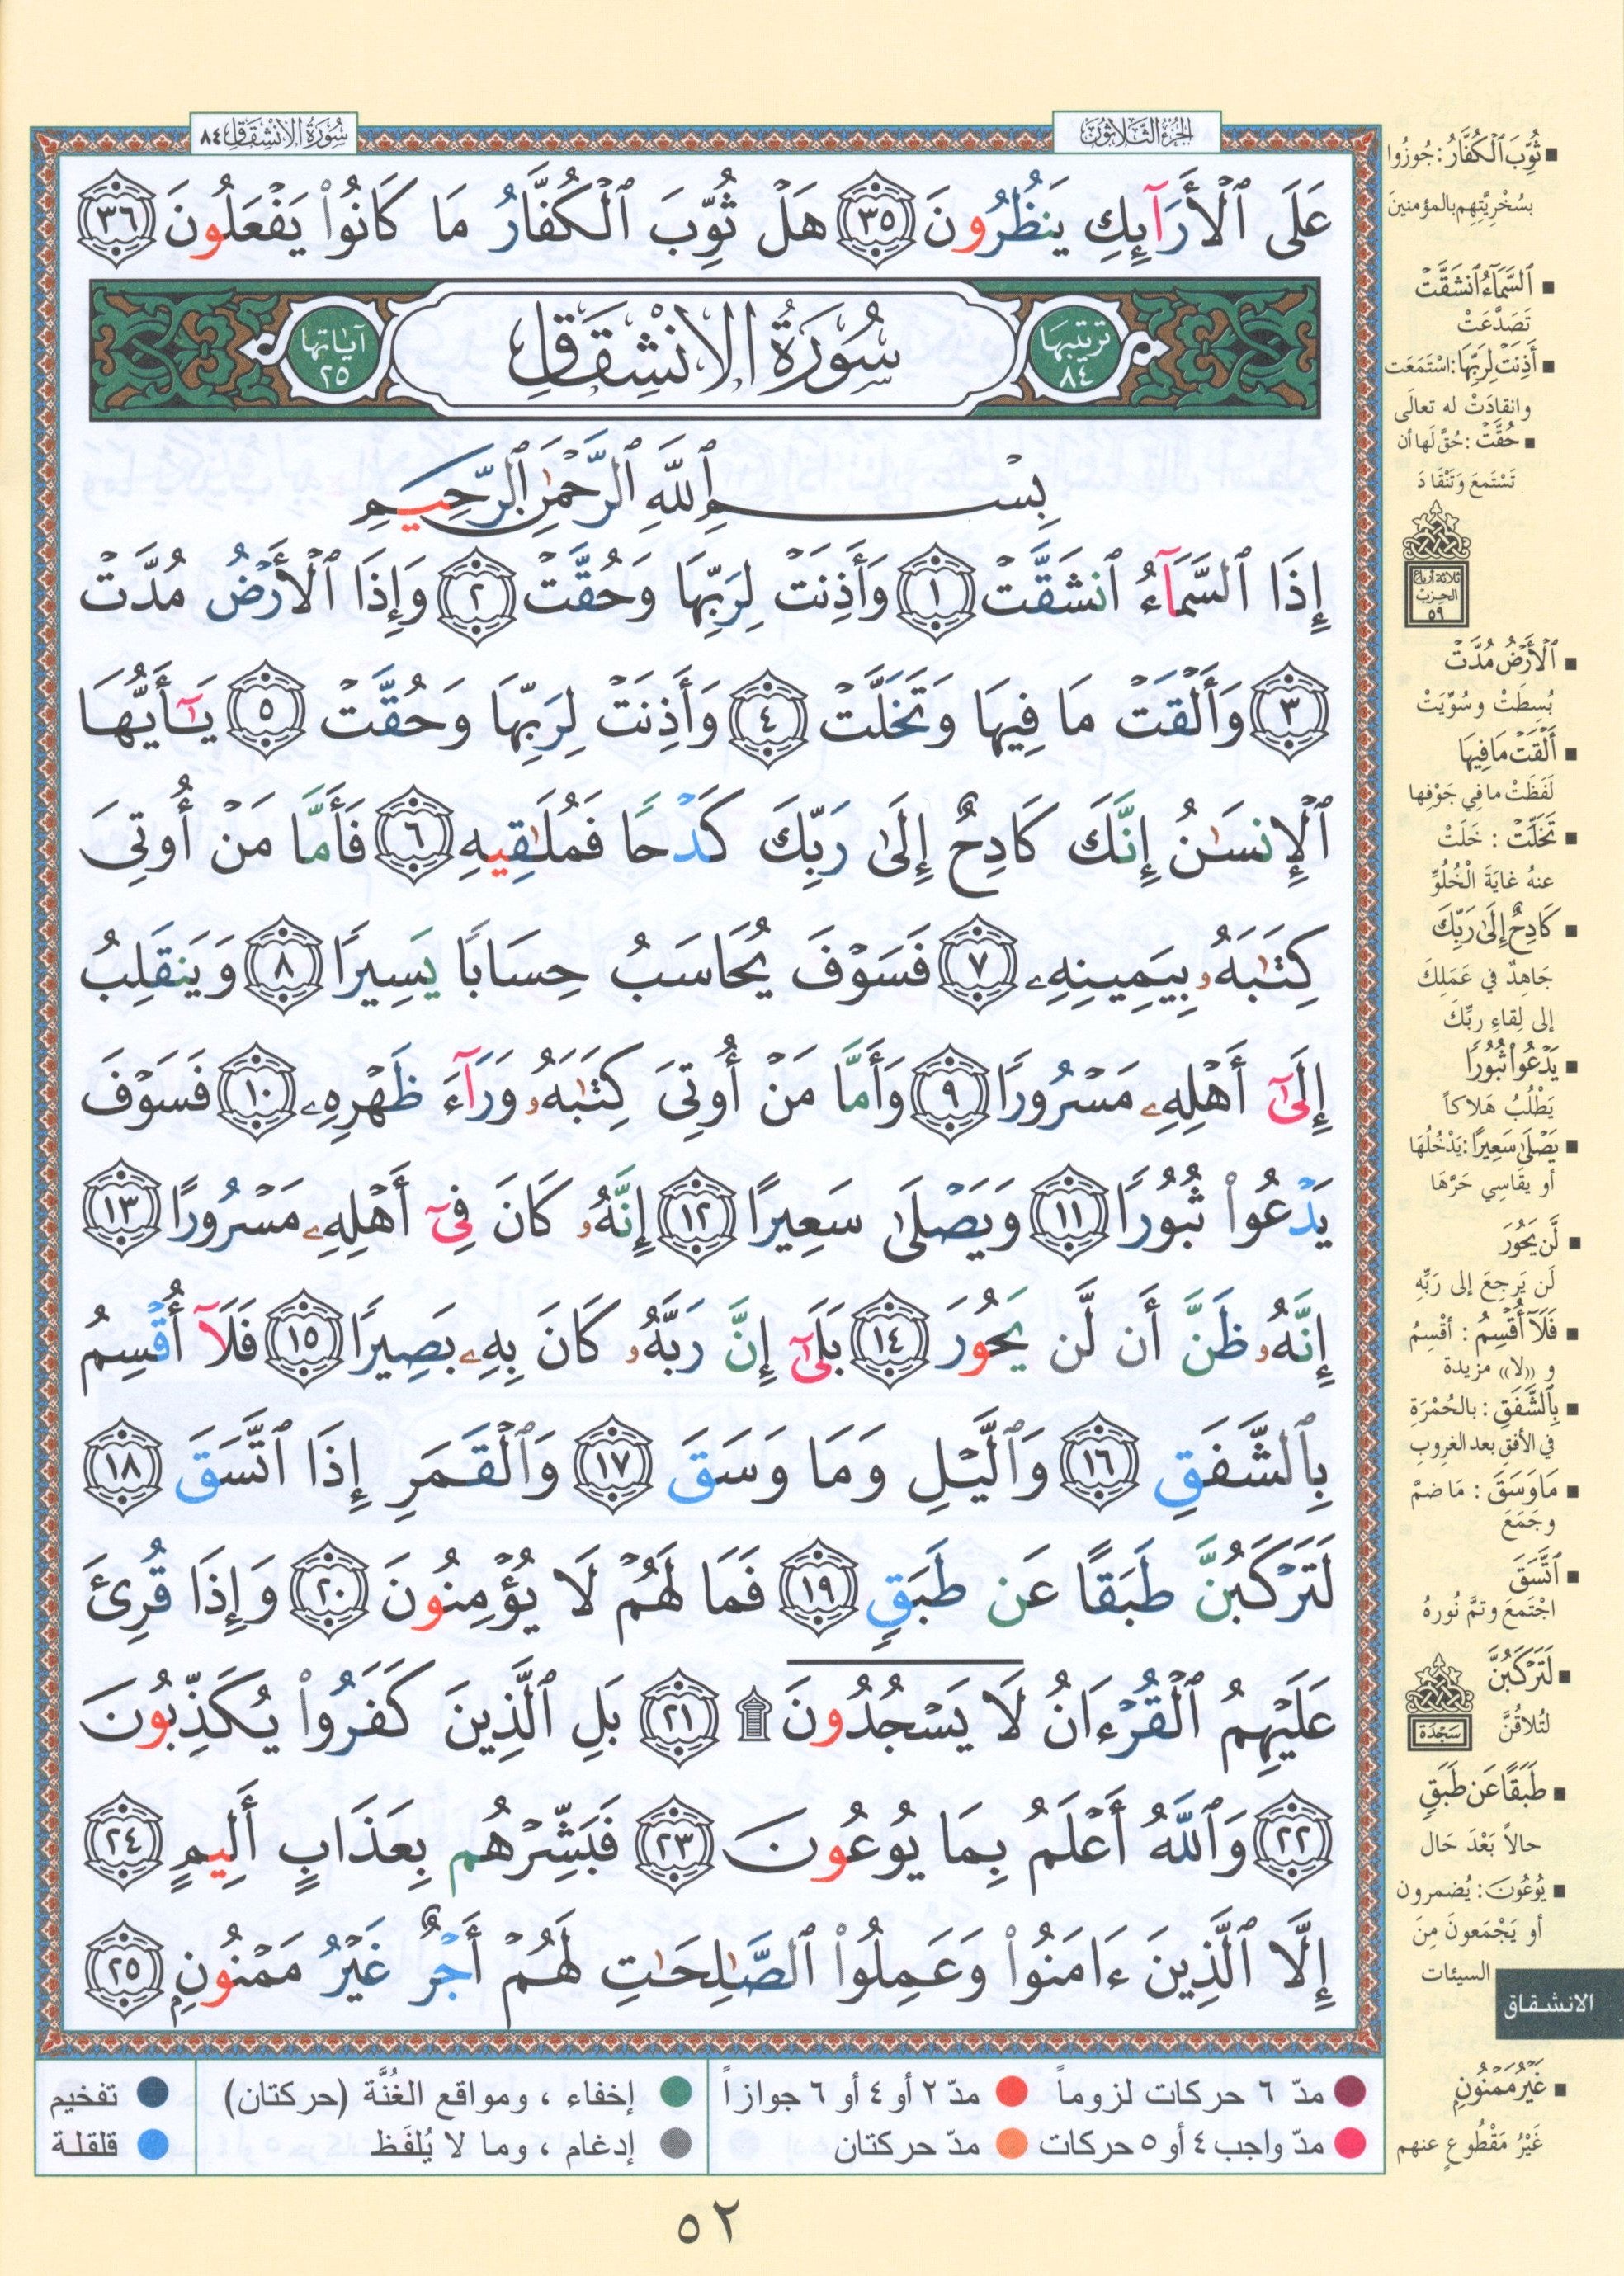 سُورَةُ الِانْشِقَاقِ ٨٤
الجُزْءُ الثَّلَاثُونَ
عَلَى ٱلْأَرَآئِكِ يَنظُرُونَ ٣٥ هَلْ ثُوِّبَ ٱلْكُفَّارُ مَا كَانُوا۟ يَفْعَلُونَ ٣٦
ترتيبها ٨٤
سُورَةُ الِانْشِقَاقِ
آياتها ٢٥
بِسْمِ ٱللَّهِ ٱلرَّحْمَٰنِ ٱلرَّحِيمِ
إِذَا ٱلسَّمَآءُ ٱنشَقَّتْ ١ وَأَذِنَتْ لِرَبِّهَا وَحُقَّتْ ٢ وَإِذَا ٱلْأَرْضُ مُدَّتْ
٣ وَأَلْقَتْ مَا فِيهَا وَتَخَلَّتْ ٤ وَأَذِنَتْ لِرَبِّهَا وَحُقَّتْ ٥ يَٰٓأَيُّهَا
ٱلْإِنسَٰنُ إِنَّكَ كَادِحٌ إِلَىٰ رَبِّكَ كَدْحًا فَمُلَٰقِيهِ ٦ فَأَمَّا مَنْ أُوتِىَ
كِتَٰبَهُۥ بِيَمِينِهِۦ ٧ فَسَوْفَ يُحَاسَبُ حِسَابًا يَسِيرًا ٨ وَيَنقَلِبُ
إِلَىٰٓ أَهْلِهِۦ مَسْرُورًا ٩ وَأَمَّا مَنْ أُوتِىَ كِتَٰبَهُۥ وَرَآءَ ظَهْرِهِۦ ١٠ فَسَوْفَ
يَدْعُوا۟ ثُبُورًا ١١ وَيَصْلَىٰ سَعِيرًا ١٢ إِنَّهُۥ كَانَ فِىٓ أَهْلِهِۦ مَسْرُورًا ١٣
إِنَّهُۥ ظَنَّ أَن لَّن يَحُورَ ١٤ بَلَىٰٓ إِنَّ رَبَّهُۥ كَانَ بِهِۦ بَصِيرًا ١٥ فَلَآ أُقْسِمُ
بِٱلشَّفَقِ ١٦ وَٱلَّيْلِ وَمَا وَسَقَ ١٧ وَٱلْقَمَرِ إِذَا ٱتَّسَقَ ١٨
لَتَرْكَبُنَّ طَبَقًا عَن طَبَقٍ ١٩ فَمَا لَهُمْ لَا يُؤْمِنُونَ ٢٠ وَإِذَا قُرِئَ
عَلَيْهِمُ ٱلْقُرْءَانُ لَا يَسْجُدُونَ ۩ ٢١ بَلِ ٱلَّذِينَ كَفَرُوا۟ يُكَذِّبُونَ
٢٢ وَٱللَّهُ أَعْلَمُ بِمَا يُوعُونَ ٢٣ فَبَشِّرْهُم بِعَذَابٍ أَلِيمٍ ٢٤
إِلَّا ٱلَّذِينَ ءَامَنُوا۟ وَعَمِلُوا۟ ٱلصَّٰلِحَٰتِ لَهُمْ أَجْرٌ غَيْرُ مَمْنُونٍۭ ٢٥
■ ثُوِّبَ ٱلْكُفَّارُ : جُوزُوا
بسُخْرِيَّتِهِم بالمؤمنينَ
■ ٱلسَّمَآءُ ٱنشَقَّتْ
تَصَدَّعَتْ
■ أَذِنَتْ لِرَبِّهَا : اسْتَمَعَت
وانقادَتْ له تعالَى
■ حُقَّتْ : حُقَّ لَها أن
تَسْتَمعَ وَتَنْقَادَ
ثلاثة أرباع
الحزب
٥٩
■ ٱلْأَرْضُ مُدَّتْ
بُسِطَتْ وسُوِّيَتْ
■ أَلْقَتْ مَا فِيهَا
لَفَظَتْ ما في جَوْفِها
■ تَخَلَّتْ : خَلَتْ
عنهُ غايَةَ الْخُلُوِّ
■ كَادِحٌ إِلَىٰ رَبِّكَ
جَاهِدٌ في عَمَلِكَ
إلى لِقاءِ ربِّكَ
■ يَدْعُوا۟ ثُبُورًا
يَطْلُبُ هَلاكاً
■ يَصْلَىٰ سَعِيرًا : يَدْخُلُهَا
أو يقَاسِي حَرَّهَا
■ لَّن يَحُورَ
لَن يَرجِعَ إلى رَبِّهِ
■ فَلَآ أُقْسِمُ : أقْسِمُ
و «لا» مزيدة
■ بِٱلشَّفَقِ : بالحُمْرَةِ
في الأفقِ بعد الغروبِ
■ مَا وَسَقَ : مَا ضمَّ
وجَمَعَ
■ ٱتَّسَقَ
اجْتَمعَ وتمَّ نُورهُ
■ لَتَرْكَبُنَّ
لتُلاقُنَّ
سَجْدَة
■ طَبَقًا عَن طَبَقٍ
حالاً بَعْدَ حَال
■ يُوعُونَ : يُضمرون
أو يَجْمَعونَ مِنَ
السيئات
الانشقاق
■ غَيْرُ مَمْنُونٍ
غَيْرُ مَقْطُوعٍ عنهم
مدّ ٦ حركات لزوماً
مدّ ٢ أو ٤ أو ٦ جوازاً
إخفاء ، ومواقع الغُنَّة (حركتان)
تفخيم
مدّ واجب ٤ أو ٥ حركات
مدّ حركتان
إدغام ، وما لا يُلفَظ
قلقلة
٥٢